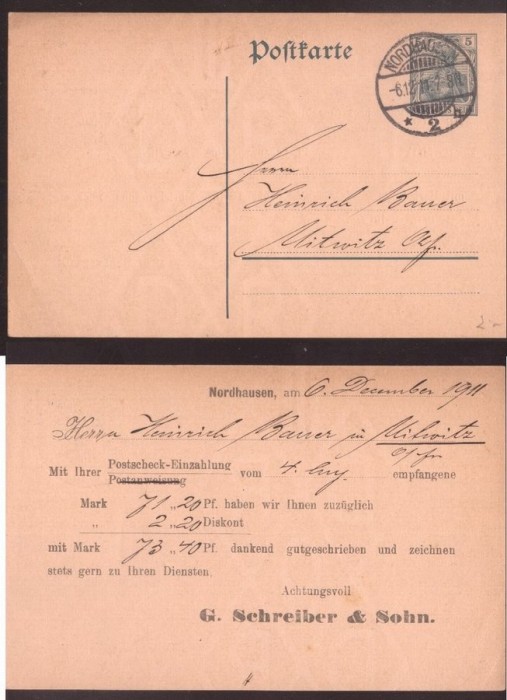 Postkarte
5
NORDHAUSEN
-6.12.11. 7-8 N.
* 2 b
Herrn
Heinrich Bauer
Mitwitz Ofr.
2.-
Nordhausen, am 6. December 1911
Herrn Heinrich Bauer in Mitwitz
o/Frn
Mit Ihrer Postscheck-Einzahlung
Postanweisung vom 4. empfangene
Mark 71 „ 20 Pf. haben wir Ihnen zuzüglich
„ 2 „ 20 Diskont
mit Mark 73 „ 40 Pf. dankend gutgeschrieben und zeichnen
stets gern zu Ihren Diensten.
Achtungsvoll
G. Schreiber & Sohn.